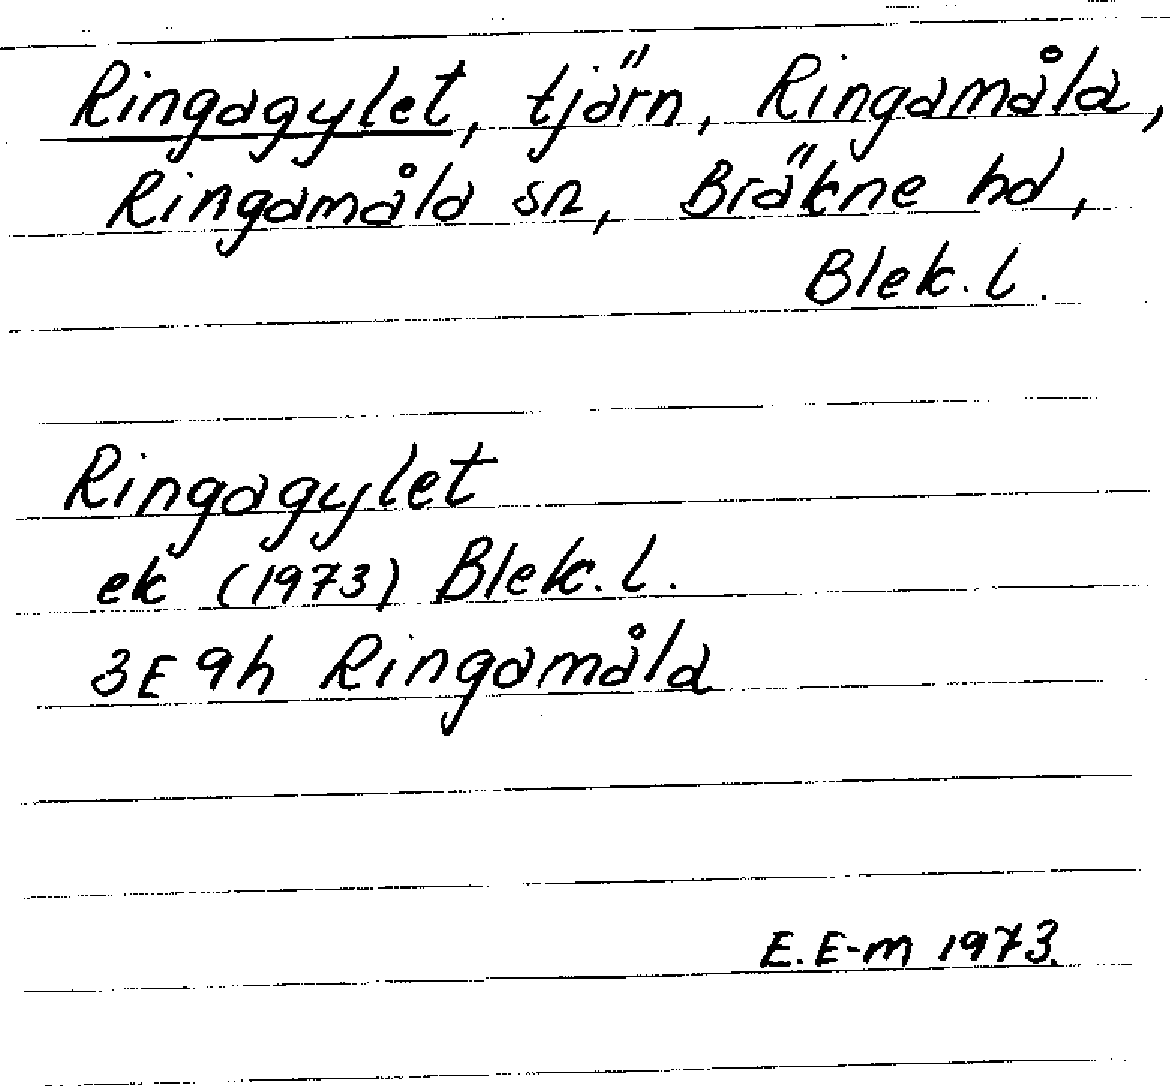 Ringagylet, tjärn, Ringamåla,
Ringamåla sn, Bräkne hd,
Blek. l.
Ringagylet
ek (1973) Blek. l.
3E 9h Ringamåla
E. E-m 1973.